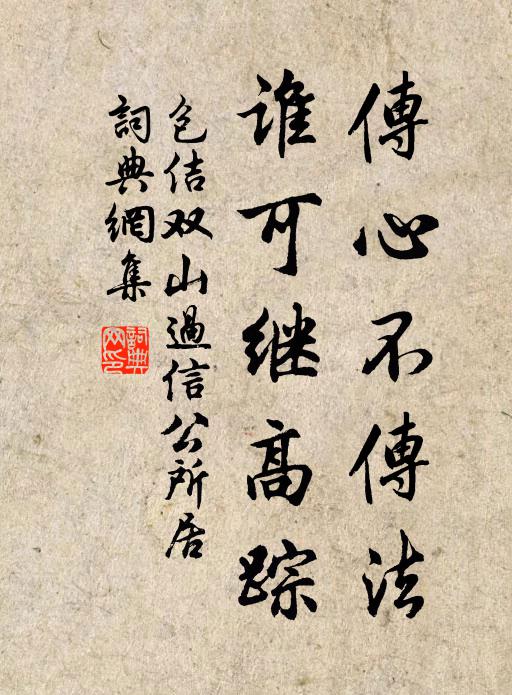 傳心不傳法
谁可继高踪
包佶双山過信公所居
詞典網集
詞典網印